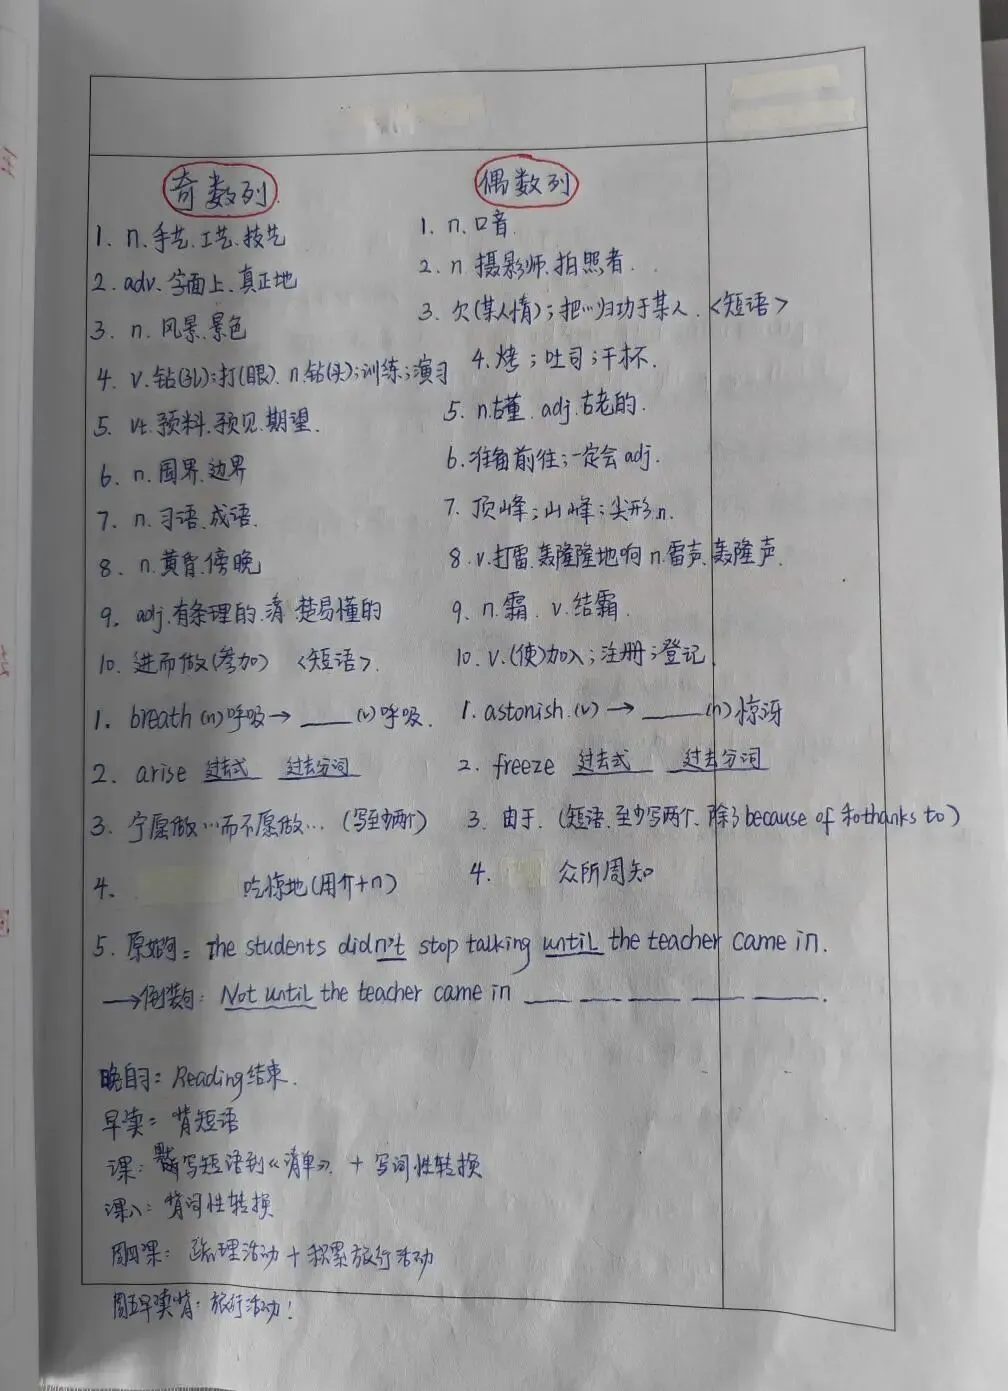 奇数列
1. n.手艺.工艺.技艺
2. adv.字面上.真正地
3. n.风景.景色
4. v.钻(孔);打(眼). n.钻(头);训练;演习
5. vt.预料.预见.期望.
6. n.国界.边界
7. n.习语.成语.
8. n.黄昏.傍晚
9. adj.有条理的.清楚易懂的
10. 进而做(参加) <短语>.
偶数列
1. n.口音.
2. n.摄影师.拍照者.
3. 欠(某人情);把…归功于某人.<短语>
4. 烤;吐司;干杯.
5. n.古董. adj.古老的.
6. 准备前往;一定会 adj.
7. 顶峰;山峰;尖形 n.
8. v.打雷.轰隆隆地响 n.雷声.轰隆声.
9. n.霜. v.结霜.
10. v.(使)加入;注册;登记.
1. breath (n)呼吸→ ____ (v)呼吸.
2. arise 过去式 过去分词
3. 宁愿做…而不愿做… (写至少两个)
4. 吃惊地(用介+n)
1. astonish.(v) → ____ (n)惊讶
2. freeze 过去式 过去分词
3. 由于. (短语.至少写两个.除了because of 和thanks to)
4. 众所周知
5. 原始句: The students didn't stop talking until the teacher came in.
→倒装句: Not until the teacher came in ___ ___ ___ ___ ___.
晚自习: Reading结束.
早读: 背短语
课: 写短语到《清单》. + 写词性转换
课八: 背词性转换
周四课: 理活动 + 积累旅行活动
周五早读背: 旅行活动!